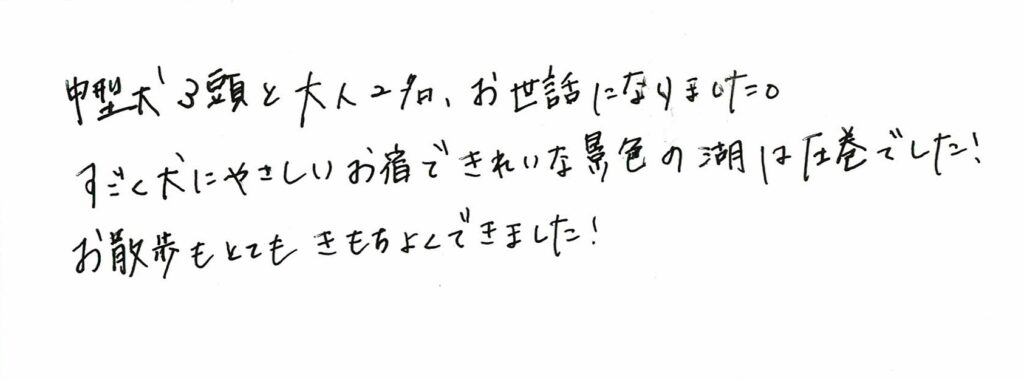 中型犬3頭と大人2名、お世話になりました。
すごく犬にやさしいお宿できれいな景色の湖は圧巻でした!
お散歩もとてもきもちよくできました!